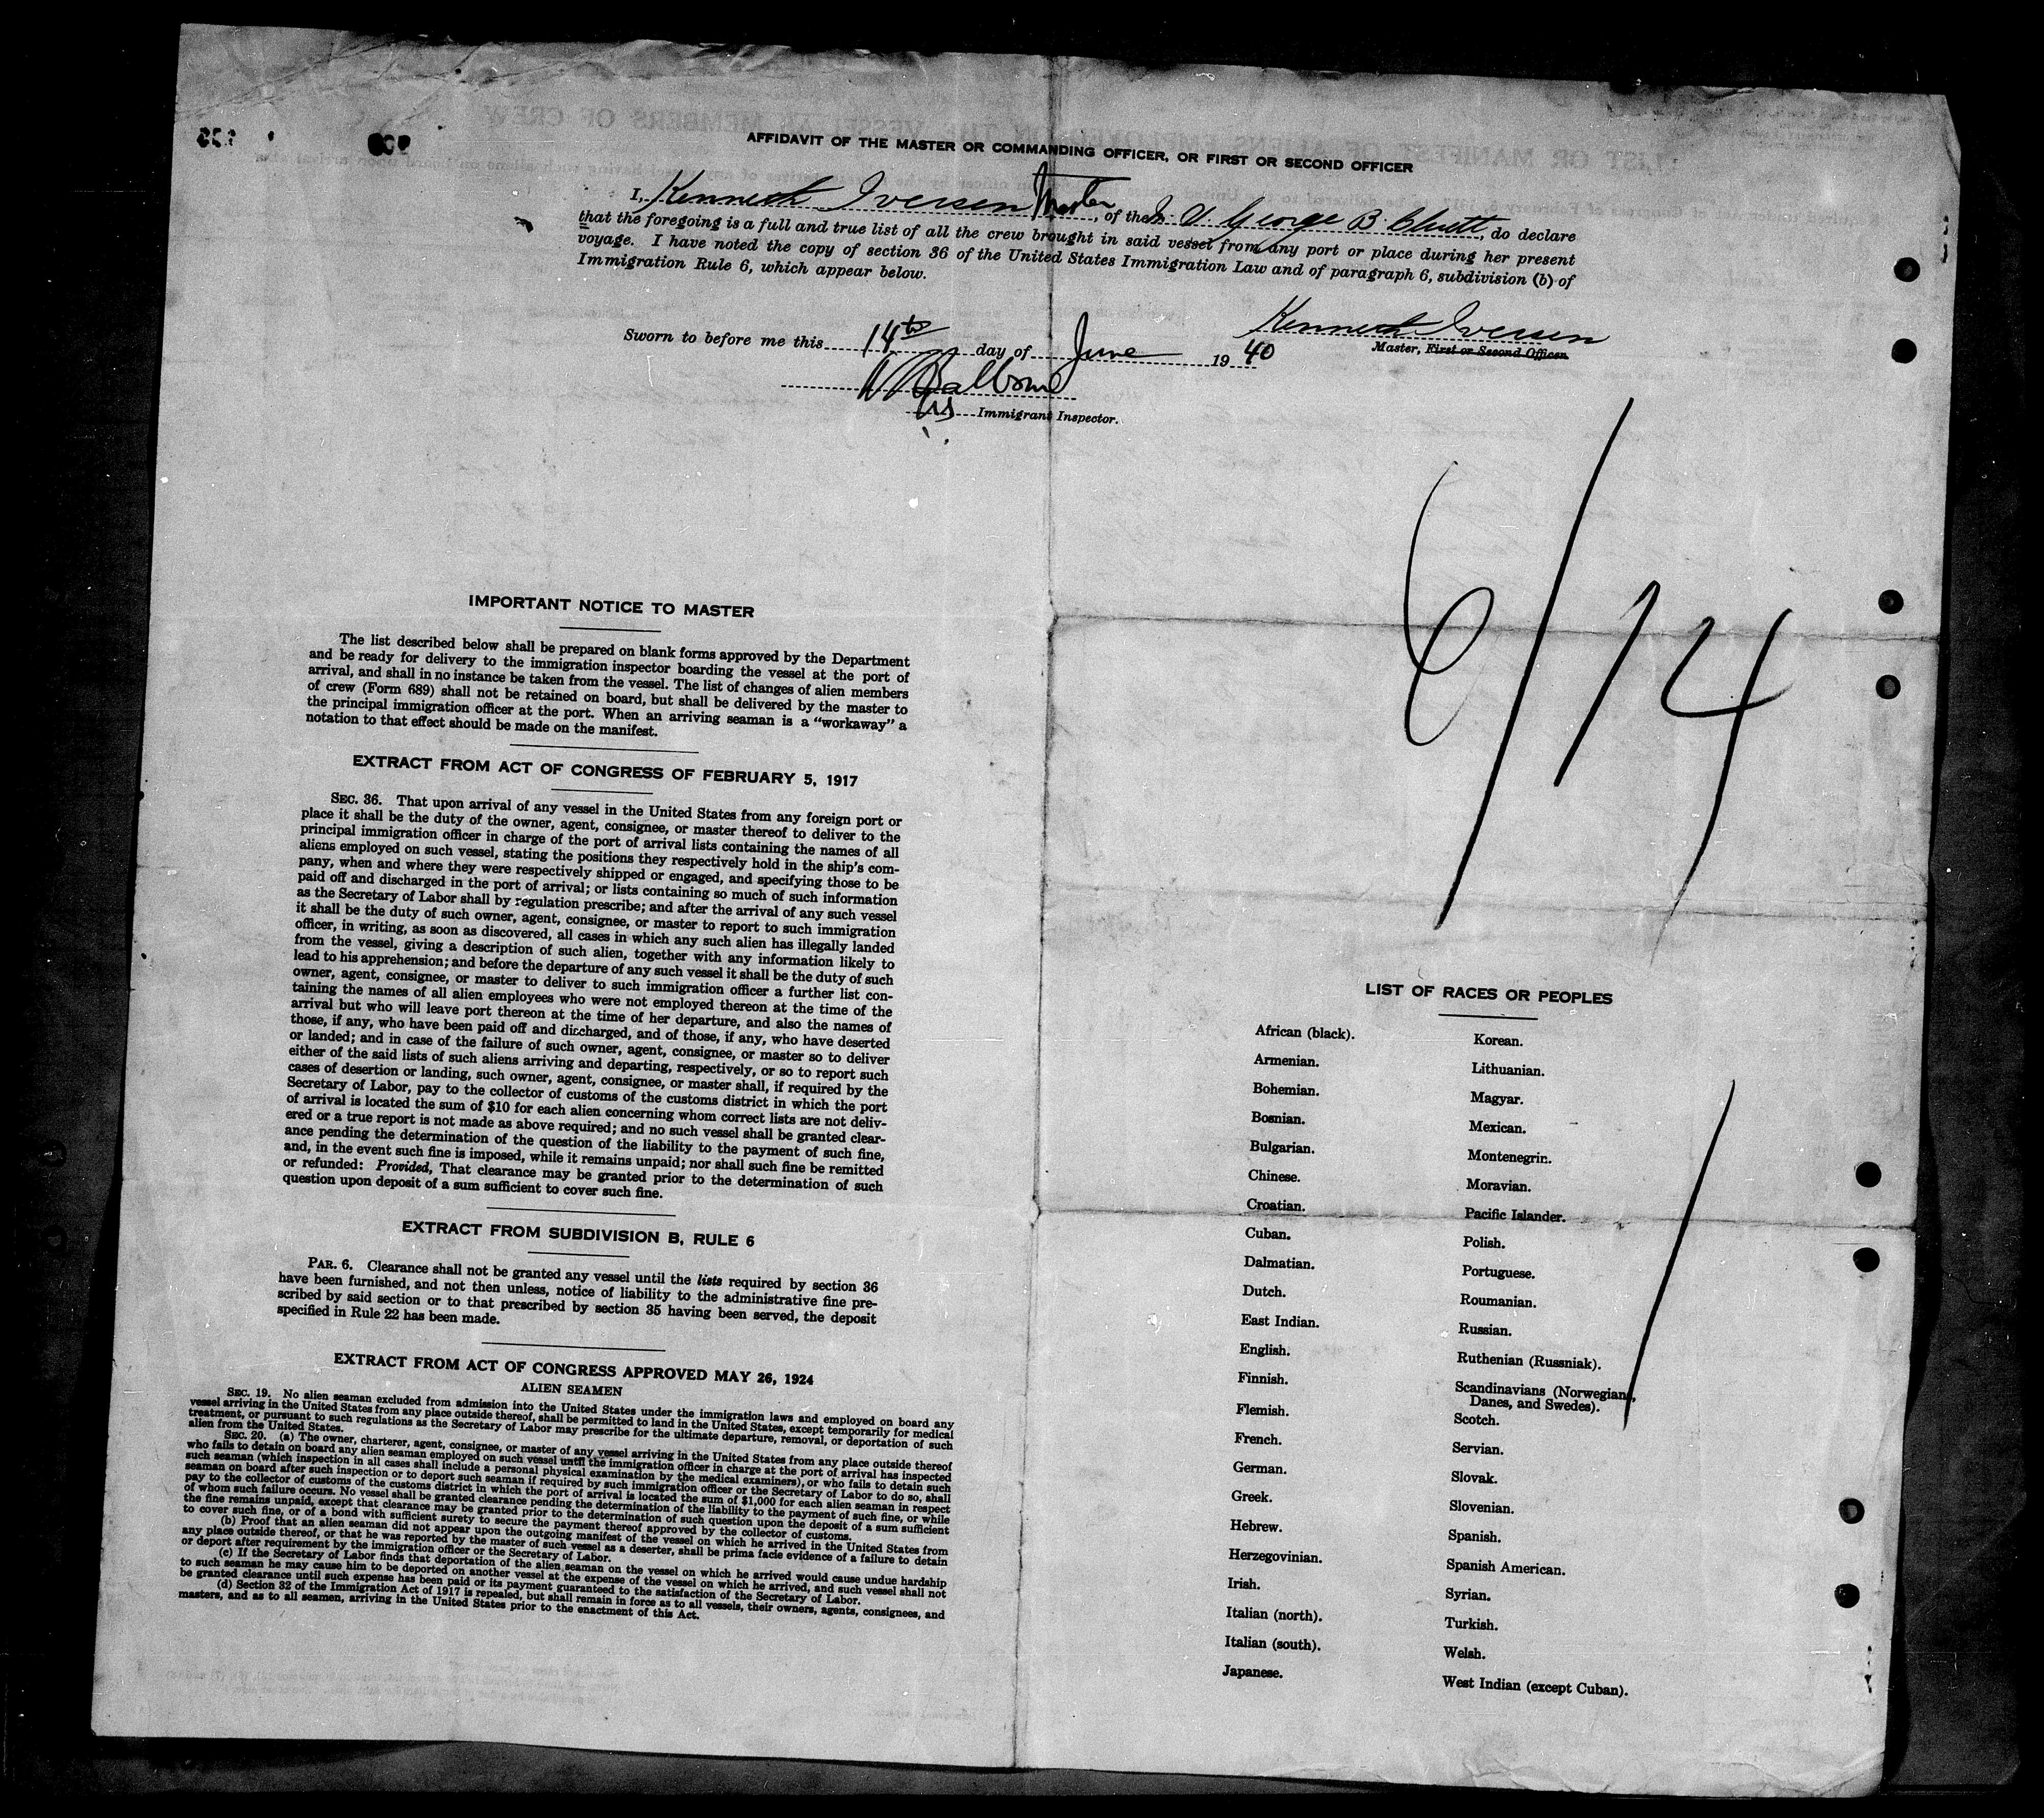 AFFIDAVIT OF THE MASTER OR COMMANDING OFFICER, OR FIRST OR SECOND OFFICER
I, Kenneth Iversen Master, of the George B. Cluett, do declare
that the foregoing is a full and true list of all the crew brought in said vessel from any port or place during her present
voyage. I have noted the copy of section 36 of the United States Immigration Law and of paragraph 6, subdivision (b) of
Immigration Rule 6, which appear below.
Kenneth Iversen
Master, First or Second Officer.
Sworn to before me this 14th day of June 1940
Immigrant Inspector.
6/14
IMPORTANT NOTICE TO MASTER
The list described below shall be prepared on blank forms approved by the Department
and be ready for delivery to the immigration inspector boarding the vessel at the port of
arrival, and shall in no instance be taken from the vessel. The list of changes of alien members
of crew (Form 689) shall not be retained on board, but shall be delivered by the master to
the principal immigration officer at the port. When an arriving seaman is a "workaway" a
notation to that effect should be made on the manifest.
EXTRACT FROM ACT OF CONGRESS OF FEBRUARY 5, 1917
SEC. 36. That upon arrival of any vessel in the United States from any foreign port or
place it shall be the duty of the owner, agent, consignee, or master thereof to deliver to the
principal immigration officer in charge of the port of arrival lists containing the names of all
aliens employed on such vessel, stating the positions they respectively hold in the ship's com-
pany, when and where they were respectively shipped or engaged, and specifying those to be
paid off and discharged in the port of arrival; or lists containing so much of such information
as the Secretary of Labor shall by regulation prescribe; and after the arrival of any such vessel
it shall be the duty of such owner, agent, consignee, or master to report to such immigration
officer, in writing, as soon as discovered, all cases in which any such alien has illegally landed
from the vessel, giving a description of such alien, together with any information likely to
lead to his apprehension; and before the departure of any such vessel it shall be the duty of such
owner, agent, consignee, or master to deliver to such immigration officer a further list con-
taining the names of all alien employees who were not employed thereon at the time of the
arrival but who will leave port thereon at the time of her departure, and also the names of
those, if any, who have been paid off and discharged, and of those, if any, who have deserted
or landed; and in case of the failure of such owner, agent, consignee, or master so to deliver
either of the said lists of such aliens arriving and departing, respectively, or so to report such
cases of desertion or landing, such owner, agent, consignee, or master shall, if required by the
Secretary of Labor, pay to the collector of customs of the customs district in which the port
of arrival is located the sum of $10 for each alien concerning whom correct lists are not deliv-
ered or a true report is not made as above required; and no such vessel shall be granted clear-
ance pending the determination of the question of the liability to the payment of such fine,
and, in the event such fine is imposed, while it remains unpaid; nor shall such fine be remitted
or refunded: Provided, That clearance may be granted prior to the determination of such
question upon deposit of a sum sufficient to cover such fine.
EXTRACT FROM SUBDIVISION B, RULE 6
PAR. 6. Clearance shall not be granted any vessel until the lists required by section 36
have been furnished, and not then unless, notice of liability to the administrative fine pre-
scribed by said section or to that prescribed by section 35 having been served, the deposit
specified in Rule 22 has been made.
EXTRACT FROM ACT OF CONGRESS APPROVED MAY 26, 1924
ALIEN SEAMEN
SEC. 19. No alien seaman excluded from admission into the United States under the immigration laws and employed on board any
vessel arriving in the United States from any place outside thereof, shall be permitted to land in the United States, except temporarily for medical
treatment, or pursuant to such regulations as the Secretary of Labor may prescribe for the ultimate departure, removal, or deportation of such
alien from the United States.
SEC. 20. (a) The owner, charterer, agent, consignee, or master of any vessel arriving in the United States from any place outside thereof
who fails to detain on board any alien seaman employed on such vessel until the immigration officer in charge at the port of arrival has inspected
such seaman (which inspection in all cases shall include a personal physical examination by the medical examiners), or who fails to detain such
seaman on board after such inspection or to deport such seaman if required by such immigration officer or the Secretary of Labor to do so, shall
pay to the collector of customs of the customs district in which the port of arrival is located the sum of $1,000 for each alien seaman in respect
of whom such failure occurs. No vessel shall be granted clearance pending the determination of the liability to the payment of such fine, or while
the fine remains unpaid, except that clearance may be granted prior to the determination of such question upon the deposit of a sum sufficient
to cover such fine, or of a bond with sufficient surety to secure the payment thereof approved by the collector of customs.
(b) Proof that an alien seaman did not appear upon the outgoing manifest of the vessel on which he arrived in the United States from
any place outside thereof, or that he was reported by the master of such vessel as a deserter, shall be prima facie evidence of a failure to detain
or deport after requirement by the immigration officer or the Secretary of Labor.
(c) If the Secretary of Labor finds that deportation of the alien seaman on the vessel on which he arrived would cause undue hardship
to such seaman he may cause him to be deported on another vessel at the expense of the vessel on which he arrived, and such vessel shall not
be granted clearance until such expense has been paid or its payment guaranteed to the satisfaction of the Secretary of Labor.
(d) Section 32 of the Immigration Act of 1917 is repealed, but shall remain in force as to all vessels, their owners, agents, consignees, and
masters, and as to all seamen, arriving in the United States prior to the enactment of this Act.
LIST OF RACES OR PEOPLES
African (black).
Armenian.
Bohemian.
Bosnian.
Bulgarian.
Chinese.
Croatian.
Cuban.
Dalmatian.
Dutch.
East Indian.
English.
Finnish.
Flemish.
French.
German.
Greek.
Hebrew.
Herzegovinian.
Irish.
Italian (north).
Italian (south).
Japanese.
Korean.
Lithuanian.
Magyar.
Mexican.
Montenegrin.
Moravian.
Pacific Islander.
Polish.
Portuguese.
Roumanian.
Russian.
Ruthenian (Russniak).
Scandinavians (Norwegians,
Danes, and Swedes).
Scotch.
Servian.
Slovak.
Slovenian.
Spanish.
Spanish American.
Syrian.
Turkish.
Welsh.
West Indian (except Cuban).